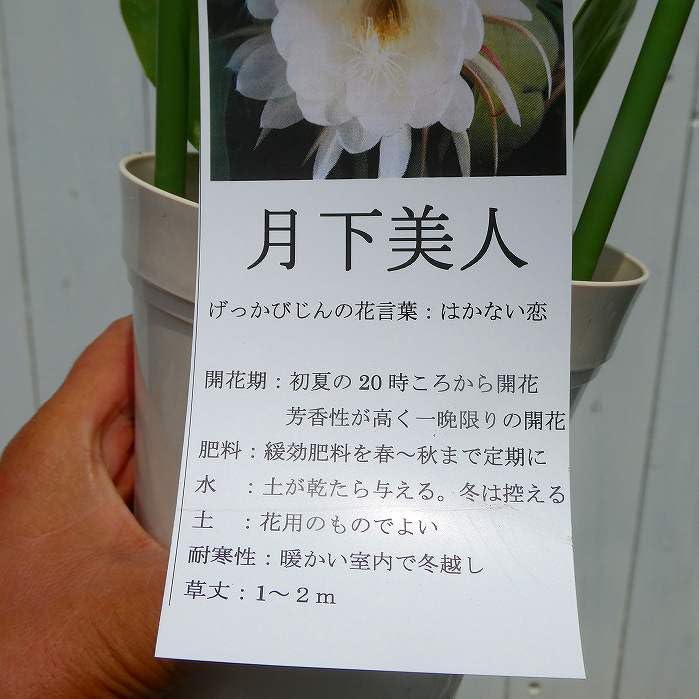 月下美人
げっかびじんの花言葉：はかない恋
開花期：初夏の20時ころから開花
芳香性が高く一晩限りの開花
肥料：緩効肥料を春～秋まで定期に
水　：土が乾たら与える。冬は控える
土　：花用のものでよい
耐寒性：暖かい室内で冬越し
草丈：1～2m